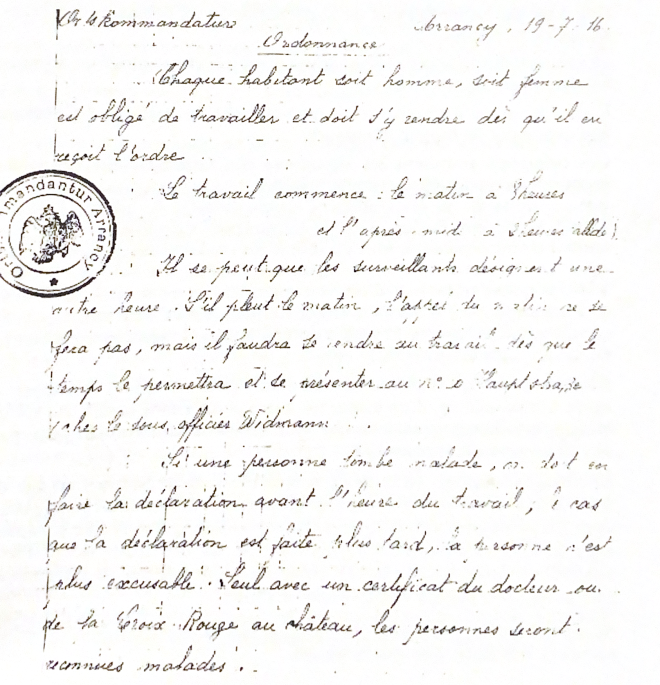 Ortskommandatur Arrancy, 19-7-16.
Ordonnance
Chaque habitant soit homme, soit femme
est obligé de travailler et doit s'y rendre dès qu'il en
reçoit l'ordre
Ortskommandantur Arrancy
Le travail commence : le matin à heures
et l'après-midi à heures (allde).
Il se peut que les surveillants désignent une
autre heure. S'il pleut le matin, l'appel du matin ne se
fera pas, mais il faudra se rendre au travail dès que le
temps le permettra et se présenter au n° Hauptstrasse
chez le sous officier Widmann.
Si une personne tombe malade, on doit en
faire la déclaration avant l'heure du travail ; le cas
que la déclaration est faite plus tard, la personne n'est
plus excusable. Seul avec un certificat du docteur ou
de la Croix Rouge au château, les personnes seront
reconnues malades.